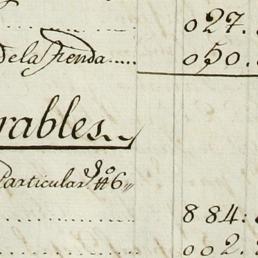 027.
de la Tienda..... 050.
rables.
Particular
884:
002.